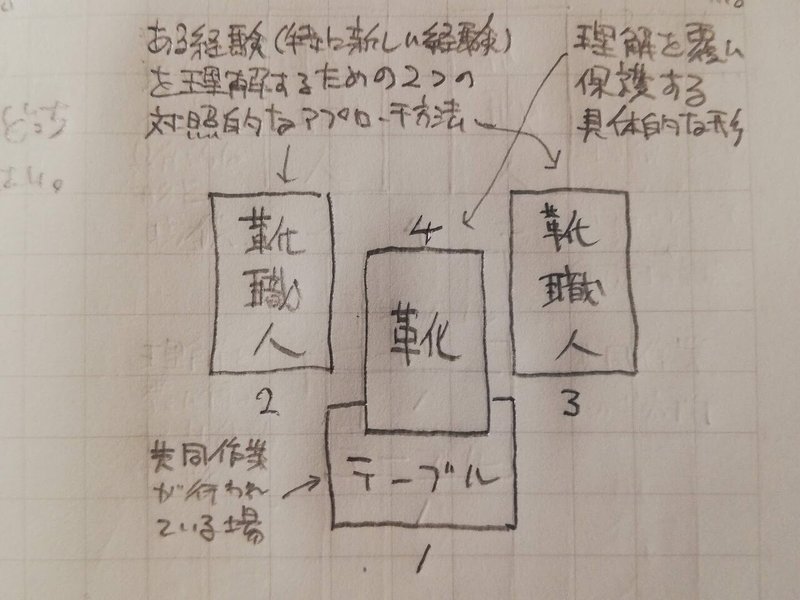 ある経験(特に新しい経験)
を理解するための2つの
対照的なアプローチ方法
理解を覆い
保護する
具体的な形
靴
職
人
2
4
靴
靴
職
人
3
共同作業
が行われ
ている場
テーブル
1